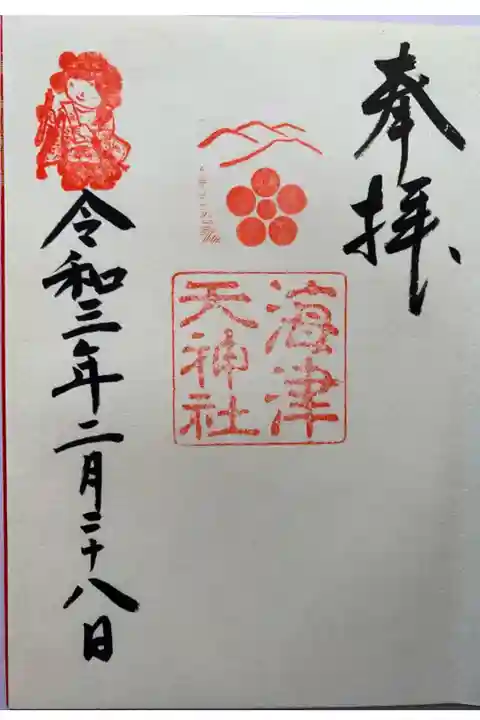 奉拝
海津
天神社
令和三年二月二十八日